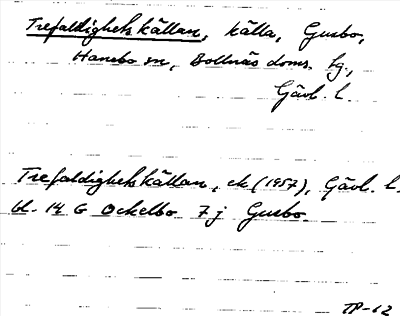 Trefaldighetskällan, källa, Gusbo,
Hanebo sn, Bollnäs doms. tg.,
Gävl. l.
Trefaldighetskällan, ek (1957), Gävl. l.
bl. 14 G Ockelbo 7 j Gusbo
TP-62